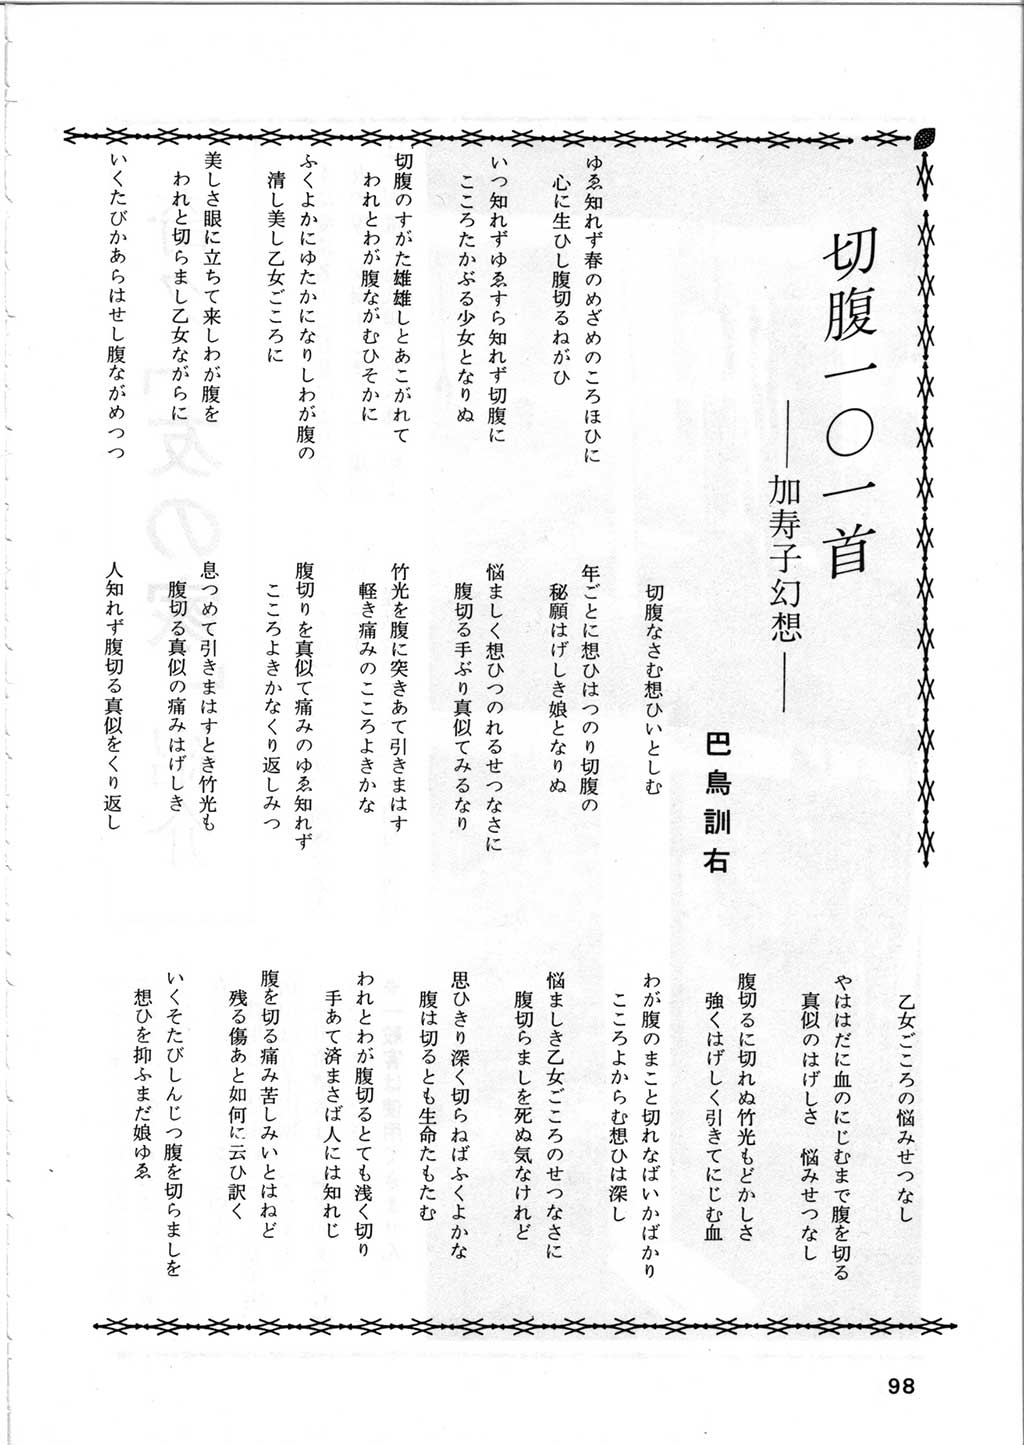 切腹一〇一首
――加寿子幻想――
巴鳥訓右
ゆゑ知れず春のめざめのころほひに
心に生ひし腹切るねがひ
いつ知れずゆゑすら知れず切腹に
こころたかぶる少女となりぬ
切腹のすがた雄雄しとあこがれて
われとわが腹ながむひそかに
ふくよかにゆたかになりしわが腹の
清し美し乙女ごころに
美しさ眼に立ちて来しわが腹を
われと切らまし乙女ながらに
いくたびかあらはせし腹ながめつつ
切腹なさむ想ひいとしむ
年ごとに想ひはつのり切腹の
秘願はげしき娘となりぬ
悩ましく想ひつのれるせつなさに
腹切る手ぶり真似てみるなり
竹光を腹に突きあて引きまはす
軽き痛みのこころよきかな
腹切りを真似て痛みのゆゑ知れず
こころよきかなくり返しみつ
息つめて引きまはすとき竹光も
腹切る真似の痛みはげしき
人知れず腹切る真似をくり返し
乙女ごころの悩みせつなし
やははだに血のにじむまで腹を切る
真似のはげしさ　悩みせつなし
腹切るに切れぬ竹光もどかしさ
強くはげしく引きてにじむ血
わが腹のまこと切れなばいかばかり
こころよからむ想ひは深し
悩ましき乙女ごころのせつなさに
腹切らましを死ぬ気なけれど
思ひきり深く切らねばふくよかな
腹は切るとも生命たもたむ
われとわが腹切るとても浅く切り
手あて済まさば人には知れじ
腹を切る痛み苦しみいとはねど
残る傷あと如何に云ひ訳く
いくそたびしんじつ腹を切らましを
想ひを抑ふまだ娘ゆゑ
98